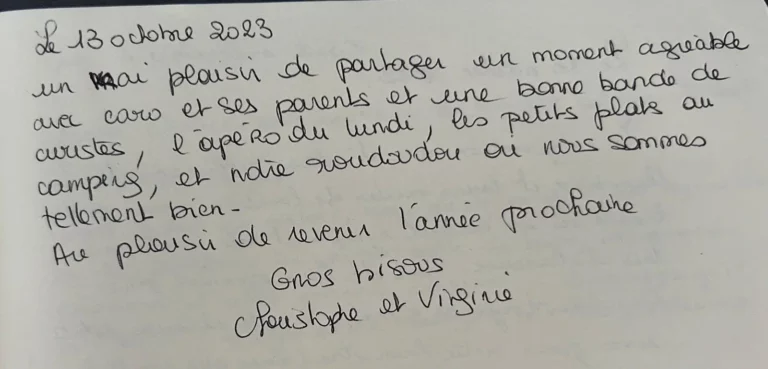 Le 13 octobre 2023
un vrai plaisir de partager un moment agréable
avec caro et ses parents et une bonne bande de
curistes, l'apéro du lundi, les petits plats au
camping, et notre roudoudou où nous sommes
tellement bien-
Au plaisir de revenir l'année prochaine
Gros bisous
Christophe et Virginie